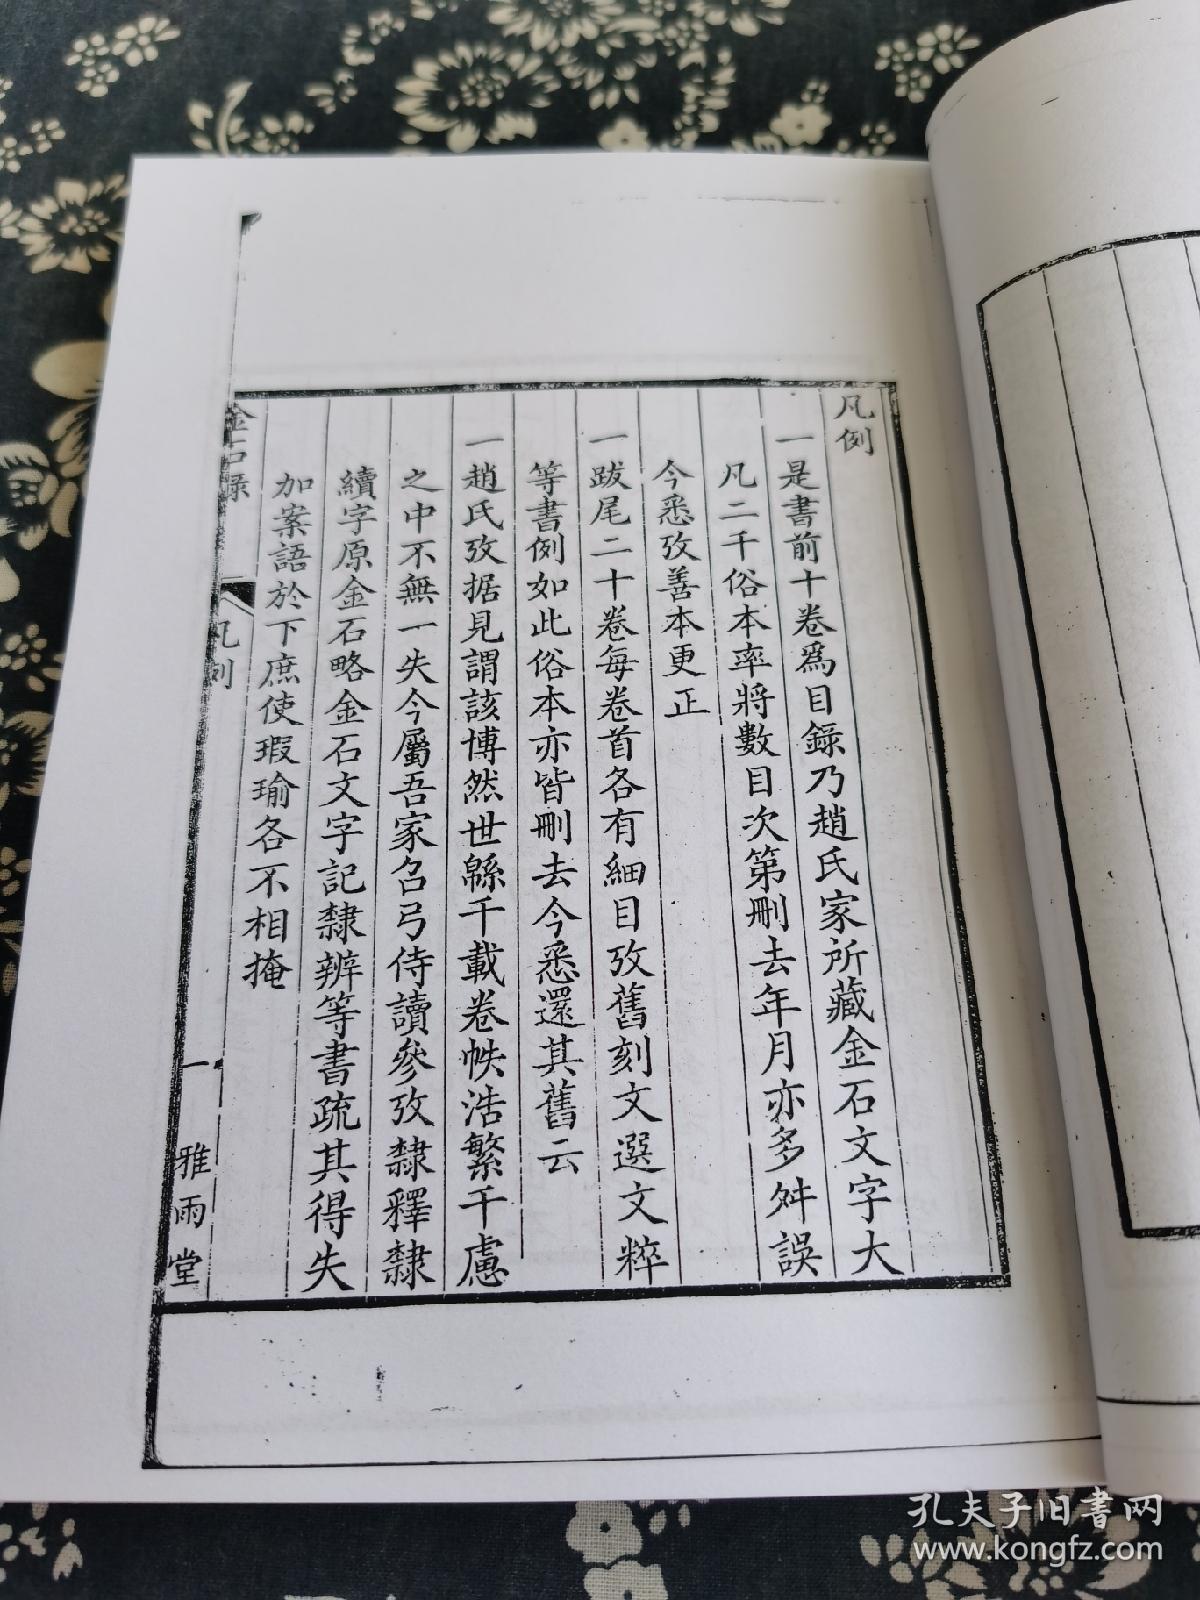 凡例
一是書前十卷爲目錄乃趙氏家所藏金石文字大
凡二千俗本率將數目次第刪去年月亦多舛誤
今悉攷善本更正
一跋尾二十卷每卷首各有細目攷舊刻文選文粹
等書例如此俗本亦皆刪去今悉還其舊云
一趙氏攷据見謂該博然世緜千載卷帙浩繁千慮
之中不無一失今屬吾家召弓侍讀參攷隸釋隸
續字原金石略金石文字記隸辨等書疏其得失
加案語於下庶使瑕瑜各不相掩
金石錄
凡例
一
雅雨堂
孔夫子旧书网
www.kongfz.com